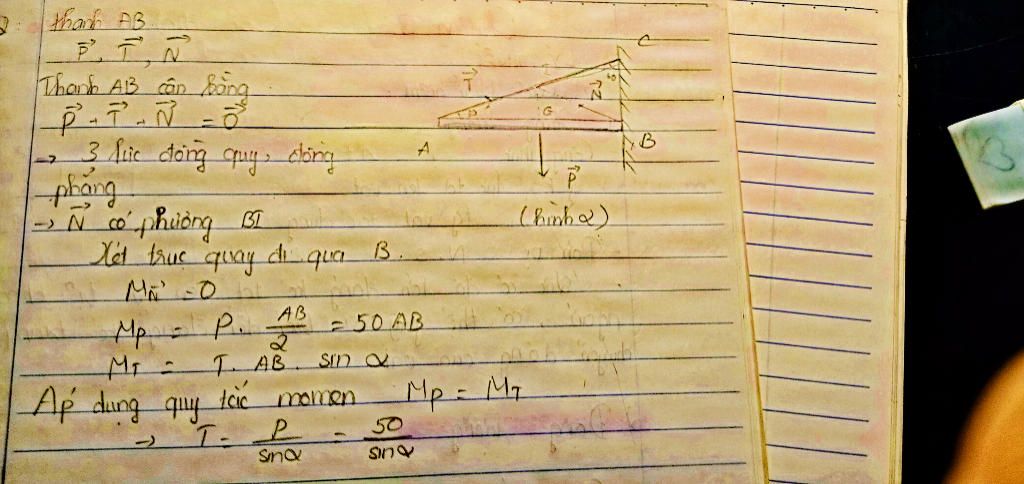 Thanh AB
P⃗, T⃗, N⃗
Thanh AB cân bằng
P⃗ + T⃗ + N⃗ = 0⃗
→ 3 lực đồng quy, đồng
phẳng
→ N⃗ có phương BI
Xét trục quay đi qua B.
M_N⃗ = 0
M_P = P. AB/2 = 50 AB
M_T = T. AB. sin α
Áp dụng quy tắc momen M_P = M_T
→ T = P/sinα = 50/sinα
C
T⃗
I
N⃗
G
A
B
P⃗
(hình 2)